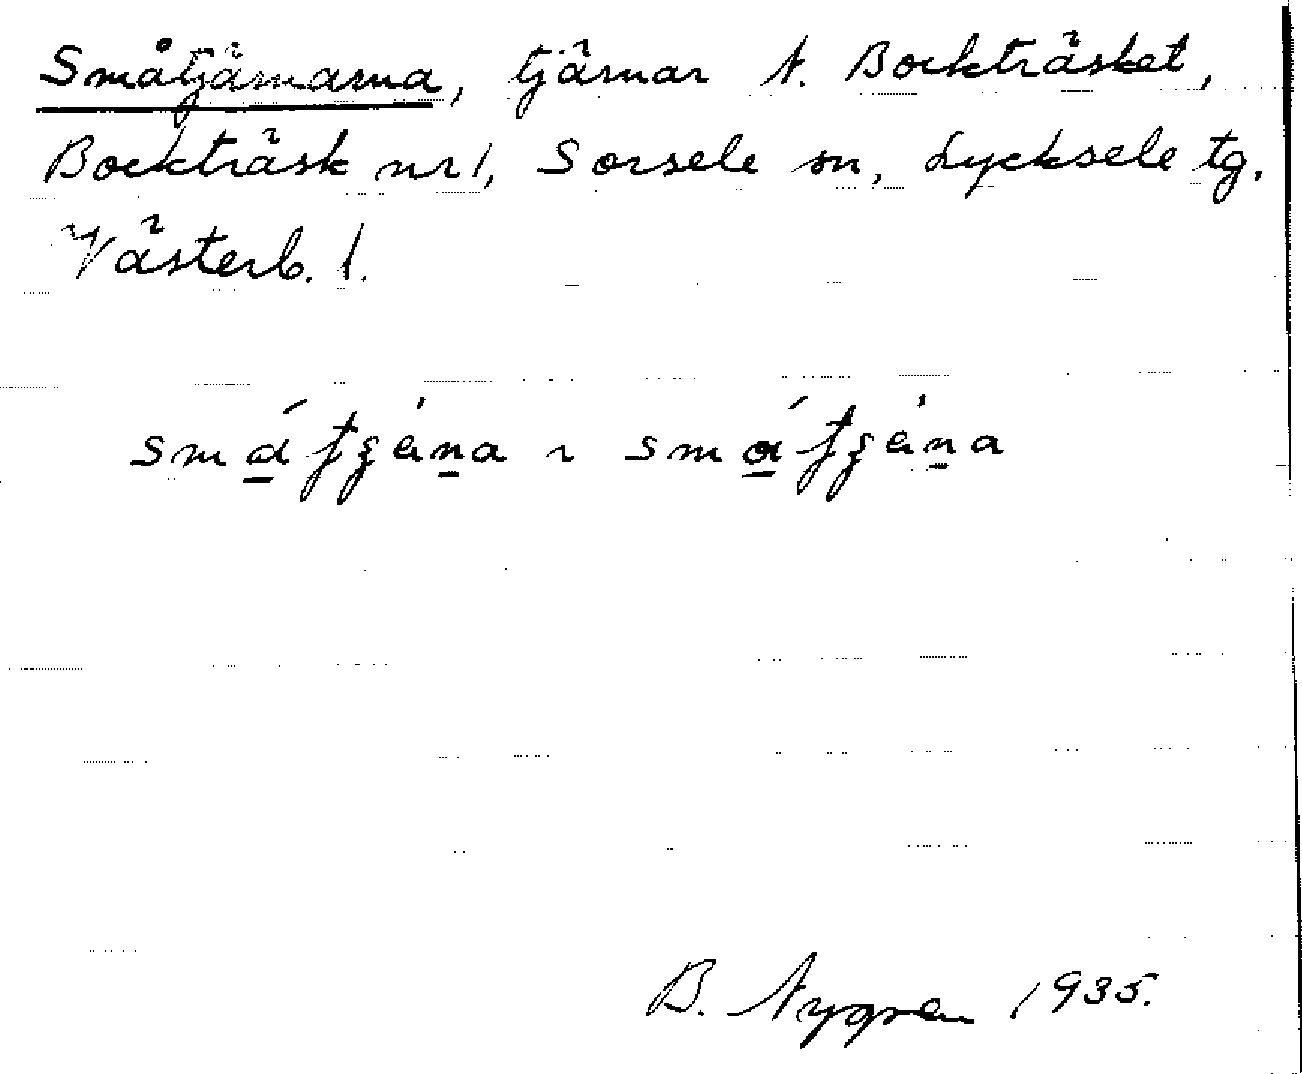 Småtjärnarna, tjärnar N. Bockträsket,
Bockträsk nr 1, Sorsele sn, Lycksele tg.
Västerb. l.
B. Nygren 1935.